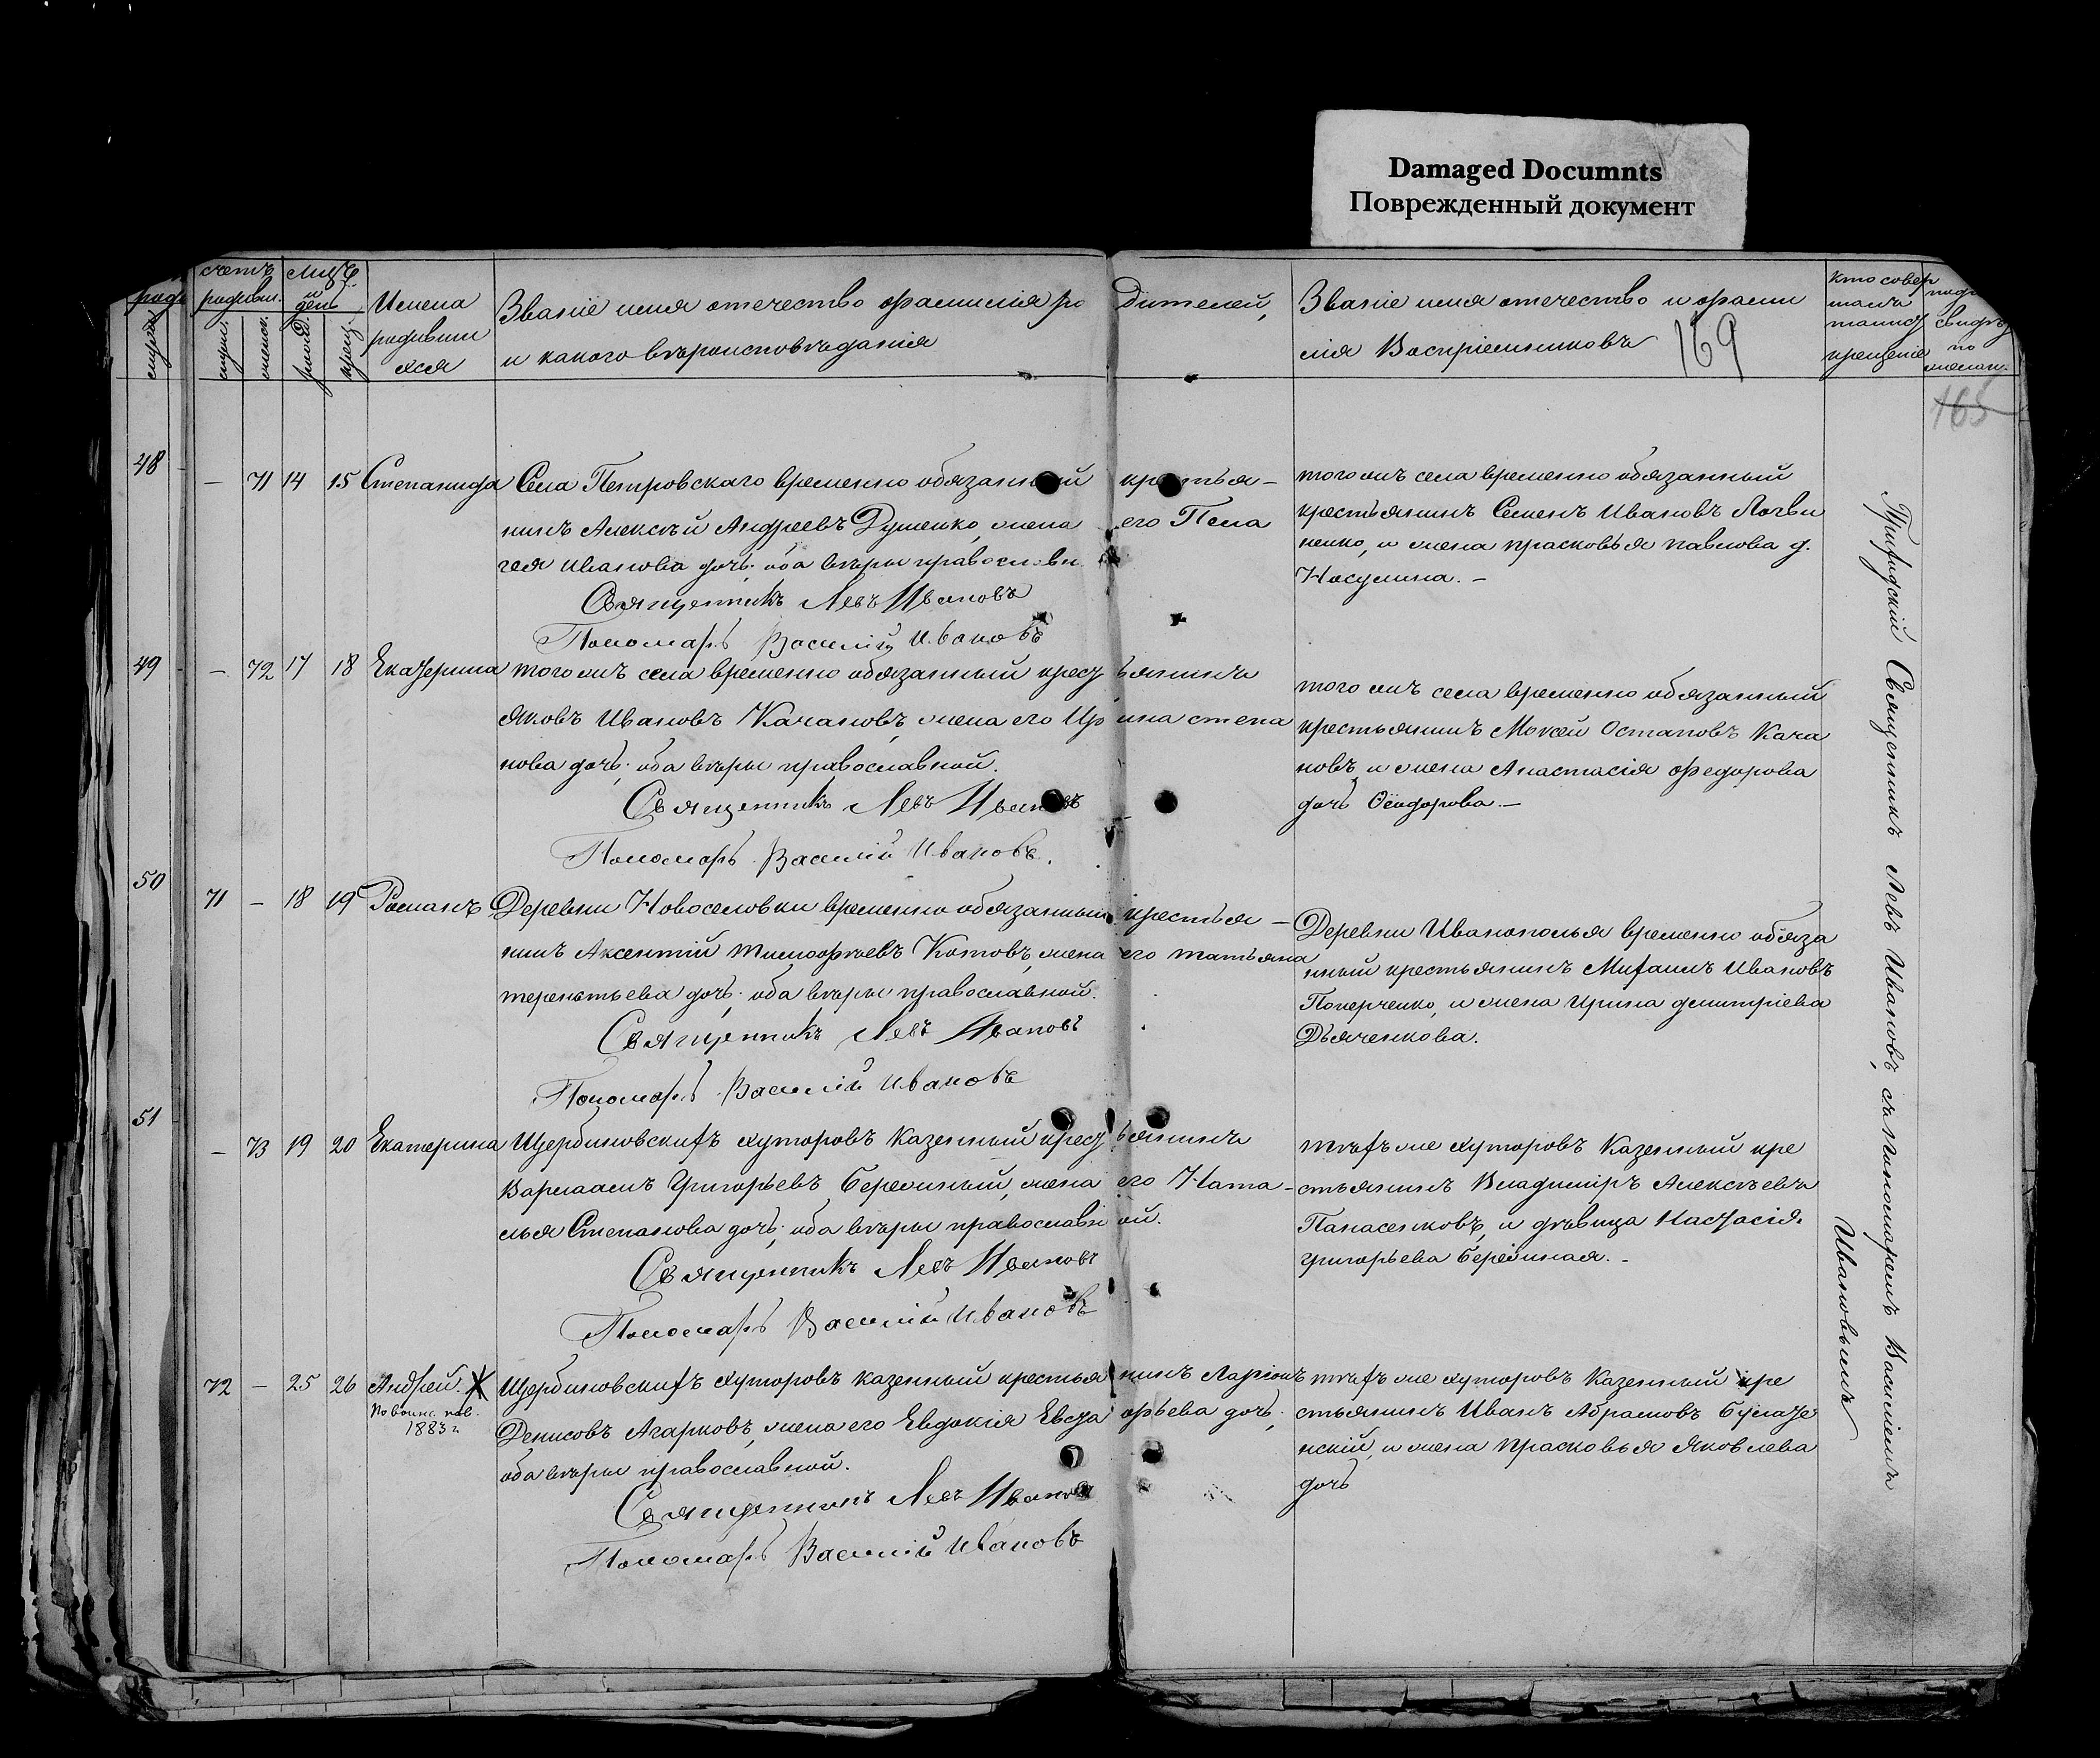 Damaged Documnts
Поврежденный документ
счетъ
родивш.
Имена
родивши
хся
Званіе имя отечество фамилія ро
дителей,
и какого вѣроисповѣданія
Званіе имя отечество и фами
лія Воспріемниковъ
169
кто совер
шалъ
таинст
крещеніе
по
желан.
165
48
— 71 14 15 Степанида
Села Петровскаго временно обязанный крестья-
нинъ Алексѣй Андреевъ Дуженко, жена его Пела
гея Иванова дочь; оба вѣры православн
Священникъ Левъ Ивановъ
Пономарь Василій Ивановъ
того жъ села временно обязанный
крестьянинъ Семенъ Ивановъ Логви
ненко, и жена Прасковья Павлова д.
49
— 72 17 18 Екатерина
того жъ села временно обязанный крестьянинъ
Яковъ Ивановъ Качановъ, жена его Ирина Степа
нова дочь; оба вѣры православной.
Священникъ Левъ Ивановъ
Пономарь Василій Ивановъ.
того жъ села временно обязанный
крестьянинъ Мокей Остаповъ Кача
новъ, и жена Анастасія Федорова
дочь Ѳёодорова.—
50
71 — 18 19 Романъ
Деревни Новоселовки временно обязанный крестья-
нинъ Аксентій Тимофѣевъ Котовъ, жена его Татьяна
Терентьева дочь; оба вѣры православной.
Священникъ Левъ Ивановъ
Пономарь Василій Ивановъ
Деревни Иванополья временно обяза
нный крестьянинъ Михаилъ Ивановъ
Поперченко, и жена Ирина Дмитріева
Дьяченкова.
51
— 73 19 20 Екатерина
Щербиновскихъ хуторовъ казенный крестьянинъ
Варлаамъ Григорьевъ Бережный, жена его Ната-
лья Степанова дочь; оба вѣры православной.
Священникъ Левъ Ивановъ
Пономарь Василій Ивановъ
тѣхъ же хуторовъ Казенный кре
стьянинъ Владиміръ Алексѣевъ
Панасенковъ, и дѣвица Настасія
Григорьева Бережная.-
72 — 25 26 Андрей. X
По воинс. пов.
1883 г.
Щербиновскихъ хуторовъ казенный крестьянинъ Ларіонъ
Денисовъ Агарковъ, жена его Евдокія Евста орьева дочь;
оба вѣры православной.
Священникъ Левъ Ивановъ
Пономарь Василій Ивановъ
тѣхъ же хуторовъ Казенный кре
стьянинъ Иванъ Абрамовъ
нскій, и жена Прасковья Яковлева
дочь
Приходскій Священникъ Левъ Ивановъ, съ пономаремъ Василіемъ
Ивановымъ